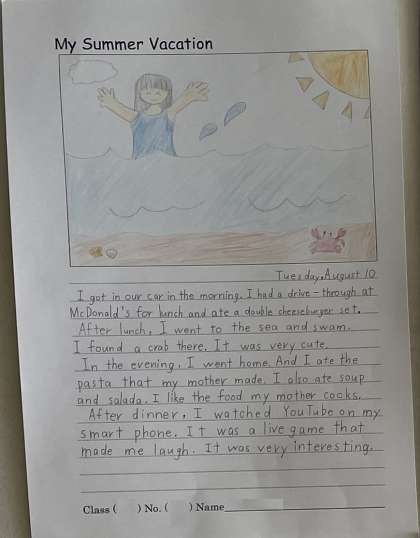 My Summer Vacation
Tuesday, August 10
I got in our car in the morning. I had a drive-through at
McDonald's for lunch and ate a double cheeseburger set.
After lunch, I went to the sea and swam.
I found a crab there. It was very cute.
In the evening, I went home. And I ate the
pasta that my mother made. I also ate soup
and salada. I like the food my mother cooks.
After dinner, I watched YouTube on my
smart phone. It was a live game that
made me laugh. It was very interesting.
Class ( ) No. ( ) Name